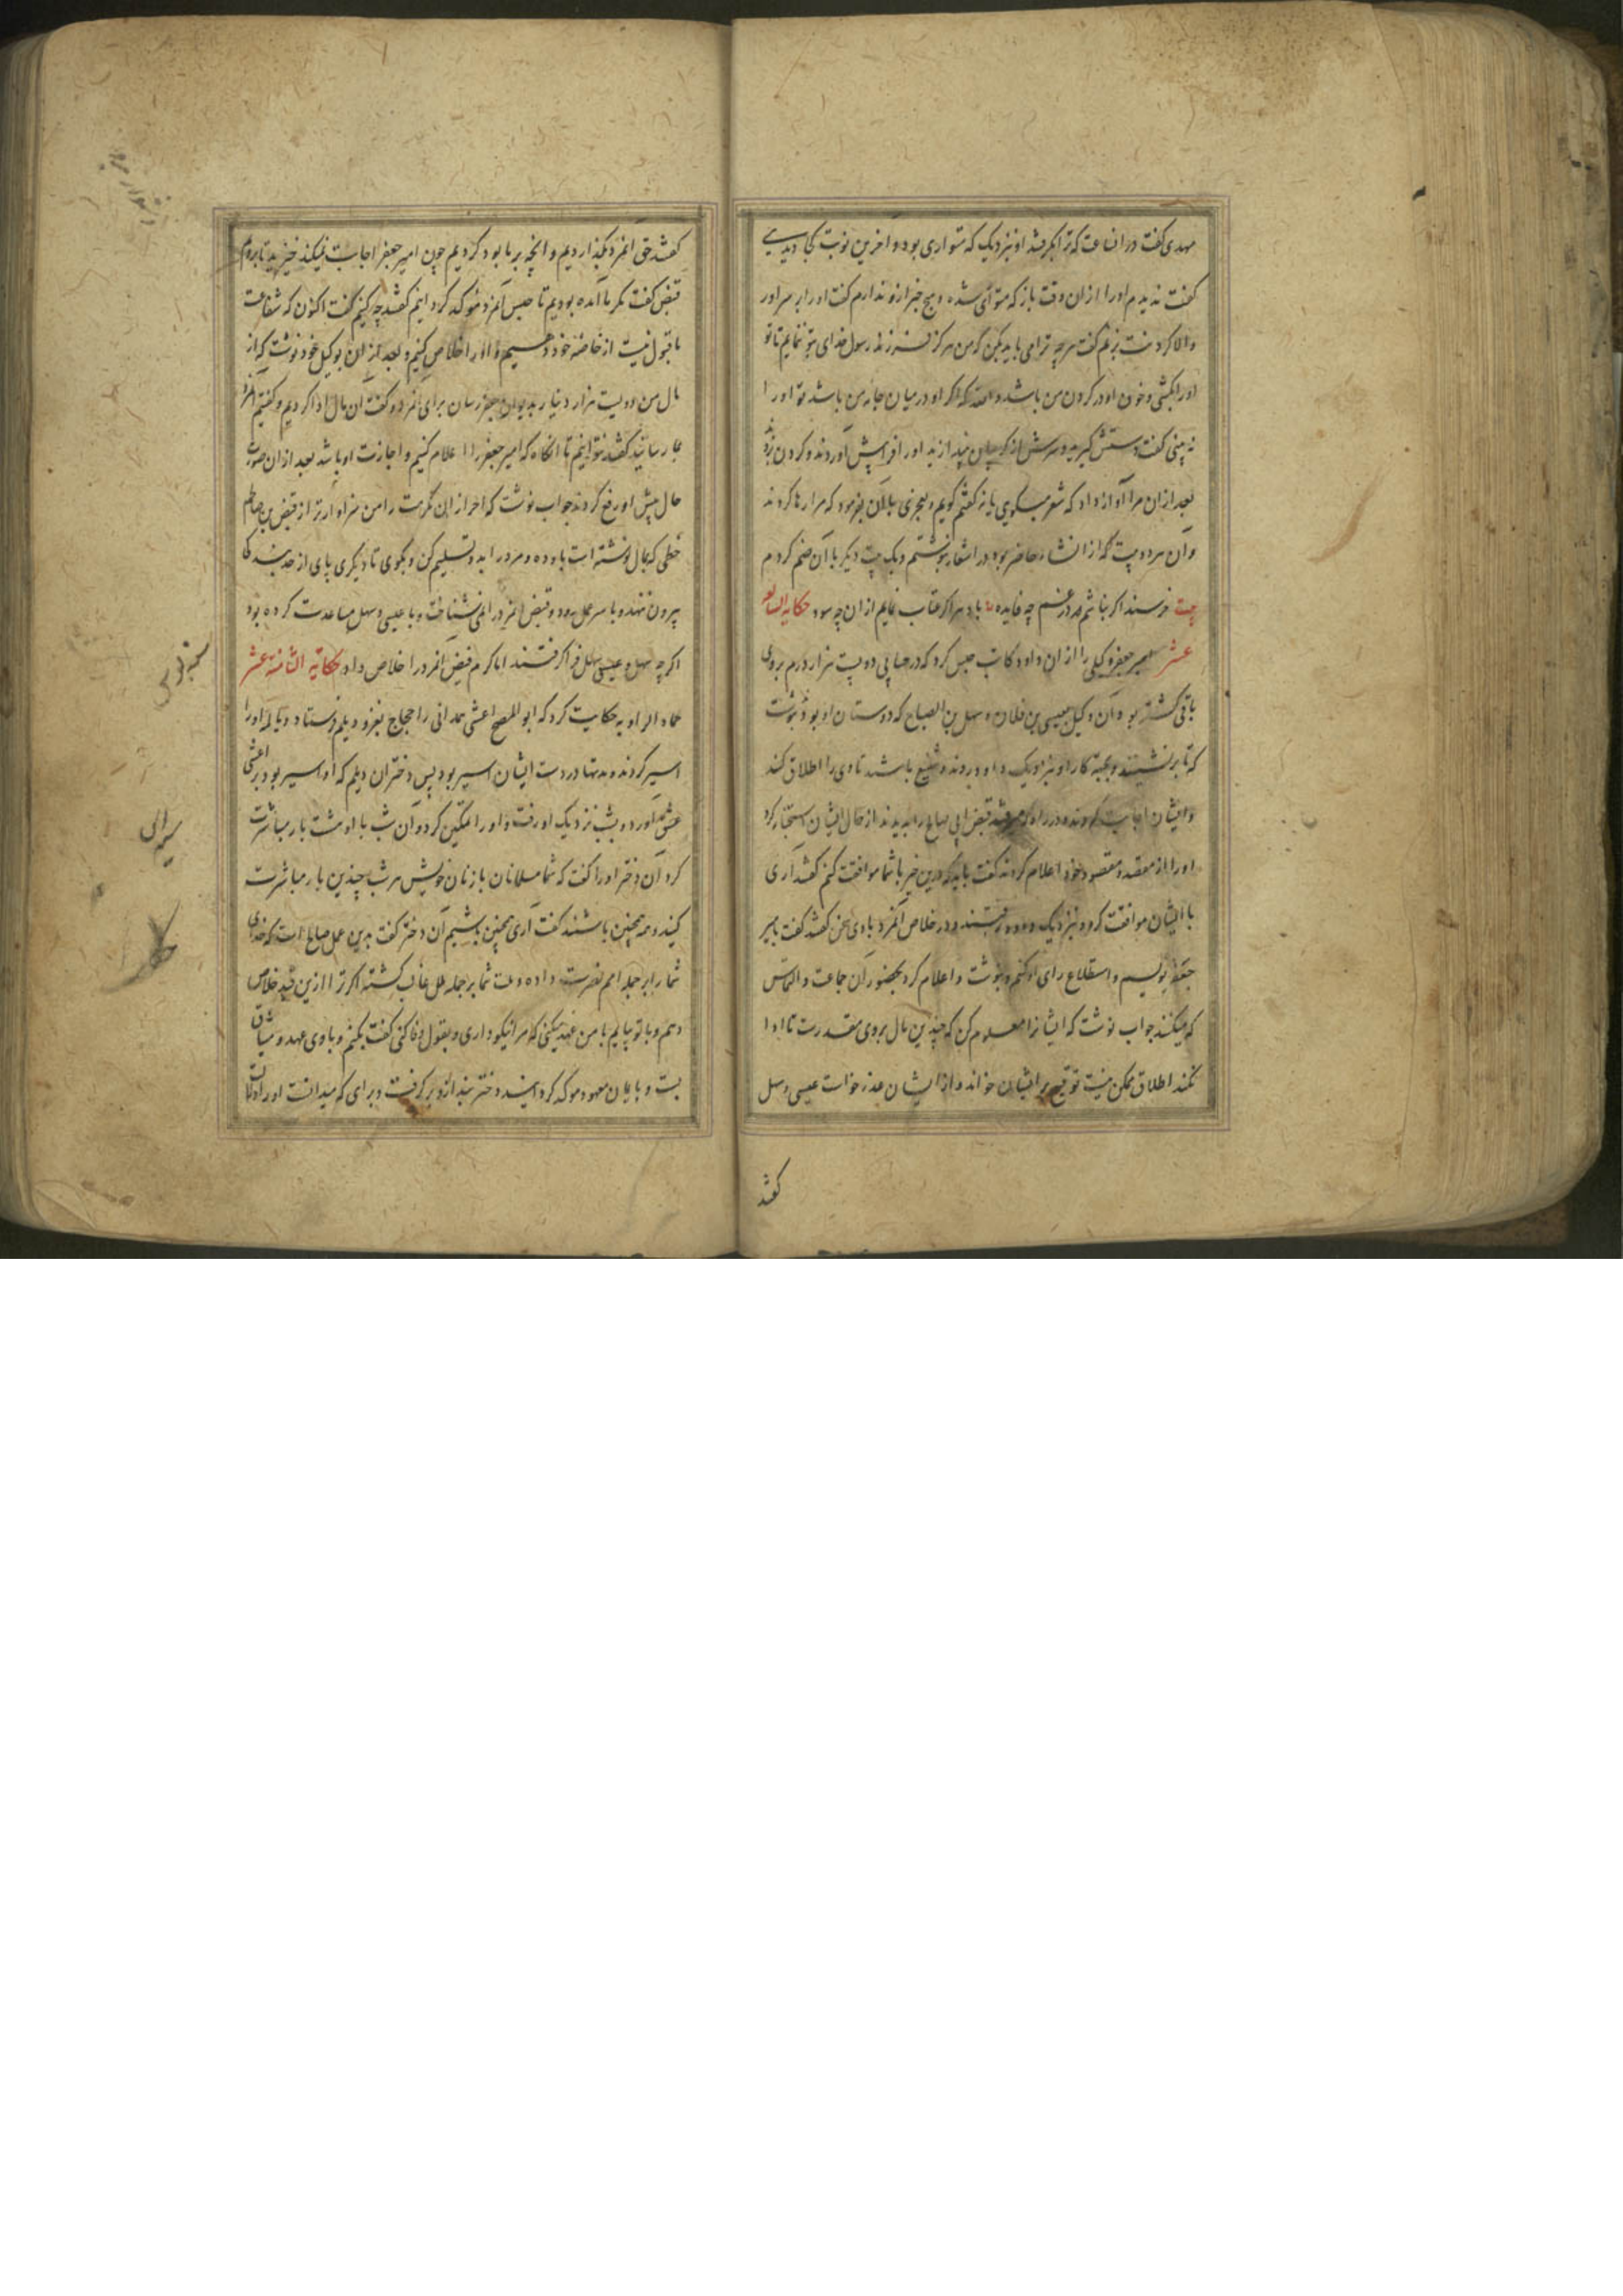 مهدی کفت در انساعت که ترا بکرفتند او بنزدیک که متواری بود و اخرین نوبت کجا دیدی
کفت ندیدم او را از ان وقت باز که متواری شده و هیچ خبر ازو ندارم کفت او را بر سر اور
والا کردنت بزنم کفت هرچه ترا می باید بکن که من هرکز فرزند رسول خدای بتو ننمایم تا تو
او را بکشی و خون او در کردن من باشد والله که اکر او در میان جامه من باشد تو او را
نه بینی کفت دستش کیرید و سرش از بیندازید او را فراپیش آوردند و کردن بزدند
بعد از ان مرا آواز داد که شعر میکویی یا نه کفتم کویم و بحری بلاکن بفرمود که مرا رها کردند
وآن هر دو بیت که از انشاء حاضر بود در اشعار بنوشتم و یک بیت دیکر با آن ضم کردم
بیت خرسند اکر نباشم در غم چه فایده با دهر اکر عتاب نمایم از ان چه سود حکایه السابعه
عشر امیر جعفر وکیلی را از ان داود کاتب حبس کرد که در حسابی دویست هزار درم بر وی
باقی کشته بود و آن وکیل بعیسی بن فلان و سهل بن الصباح که دوستان او بودند نوشت
که تا برنشینند و بجهة کار او بنزدیک داود روند و شفیع باشند تا وی را اطلاق کند
و ایشان اجابت کردند و در راه که میرفتند فیض ابی صالح را بدیدند از حال ایشان استخبار کرد
او را از مقصد و مقصود خود اعلام کردند کفت باید که درین خیر با شما موافقت کنم کفتند آری
با ایشان موافقت کرد و بنزدیک داود رفتند و در خلاص آنمرد با وی سخن کفتند کفت بامیر
جعفر نویسم و استطلاع رای او کنم و بنوشت و اعلام کرد بحضور آن جماعت و التماس
که میکنند جواب نوشت که ایشانرا معلوم کن که چندین مال بر وی مقدرست تا ادا
نکند اطلاق ممکن نیست توقیع بر ایشان خواند و از ایشان عذر خواست عیسی و سهل
کفتند
کفتند حق آنمرد بکذاردیم و انچه بر ما بود کردیم چون امیر جعفر اجابت نمیکند خیزید تا برویم
فیض کفت مکر ما آمده بودیم تا حبس آنمرد موکد کردانیم کفتند چه کنیم کفت اکنون که شفاعت
ما قبول نیست از خاصه خود دهیم و او را خلاص کنیم و بعد از ان بوکیل خود نوشت که از
مال من دویست هزار دینار بدیوان جعفر رسان برای آنمرد و کفت آن مال ادا کردیم و کفتیم آنمرد را
بما رسانید کفتند نتوانیم تا انکاه که امیر جعفر را اعلام کنیم و اجازت او باشد بعد از ان صورت
حال پیش او رفع کردند جواب نوشت که احراز این مکرمت را من سزاوارتر از فیض بن صالح
خطی که بمال نوشته است باو ده و مرد را بدو تسلیم کن و بکوی تا دیکری پای از حد بندکا
بیرون ننهد و با سر عمل رود و فیض آنمرد را نمی شناخت و با عیسی و سهل مساعدت کرده بود
اکرچه سهل و عیسی سهل فرا کرفتند اما کرم فیض انمرد را خلاص داد حکایة الثامنة عشر
حماد الراویه حکایت کرد که ابو المصبح اعشی همدانی را حجاج بغزو دیلم فرستاد و دیالمه او را
اسیر کردند و مدتها در دست ایشان اسیر بود پس دختران دیلم که او اسیر بود بر اعشی
عشق آورد و بشب نزدیک او رفت و او را تمکین کرد و آن شب با او هشت بار مباشرت
کرد آن دختر او را کفت که شما مسلمانان با زنان خویش هر شب چندین بار مباشرت
کنید و همه همچنین باشند کفت آری همچنین باشیم آن دختر کفت بدین عمل صالح است که خدای
شما را بر جمله امم نصرت داده و ملت شما بر جمله ملل غالب کشته اکر ترا ازین قید خلاص
دهم و با تو بیایم با من عهد میکنی که مرا نیکو داری و بقول وفا کنی کفت بکنم و با وی عهد و میثاق
بست و بایمان معهود موکد کردانید دختر بند ازو بر کرفت و برای که میدانست او را